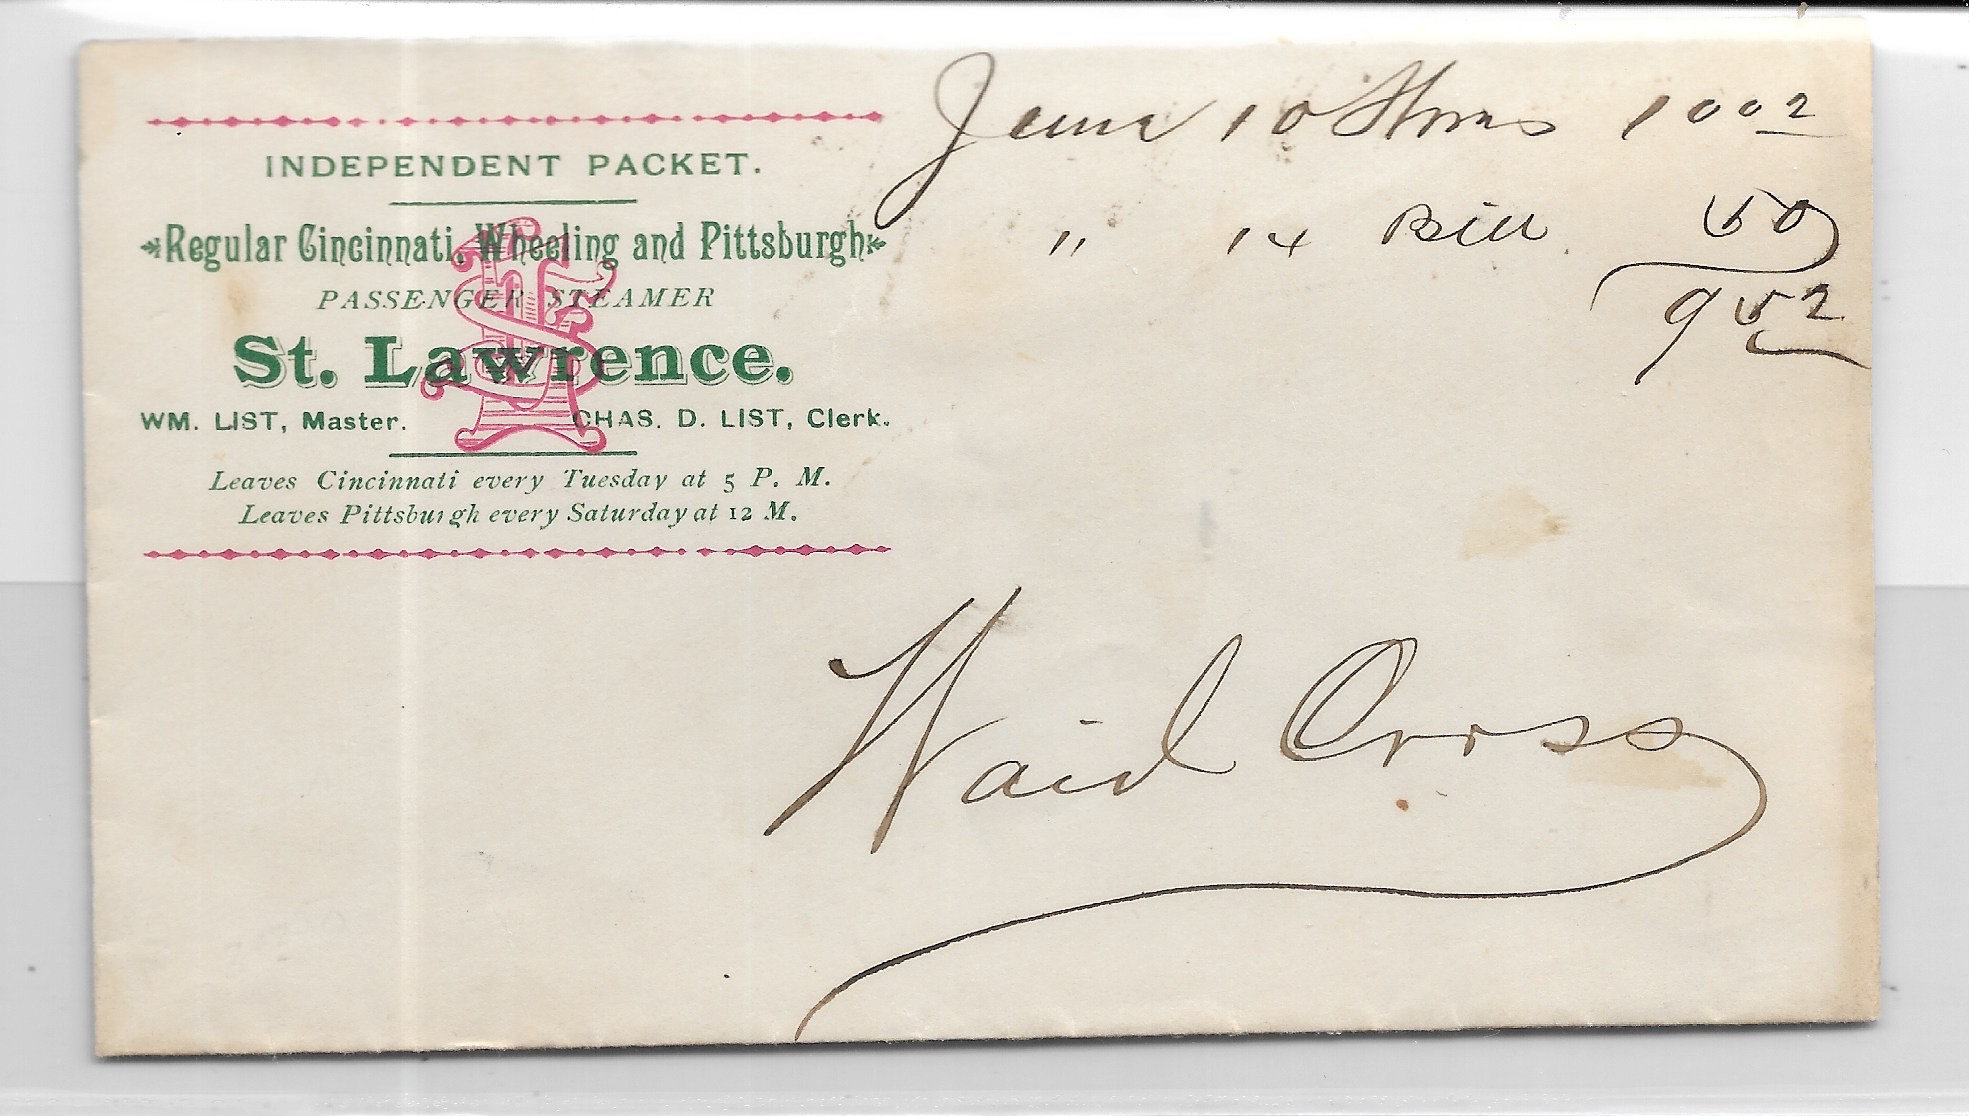 INDEPENDENT PACKET.
Regular Cincinnati, Wheeling and Pittsburgh
PASSENGER STEAMER
St. Lawrence.
WM. LIST, Master. CHAS. D. LIST, Clerk.
Leaves Cincinnati every Tuesday at 5 P. M.
Leaves Pittsburgh every Saturday at 12 M.
June 10 1002
" 14 Bill 50
952
Waid Cross